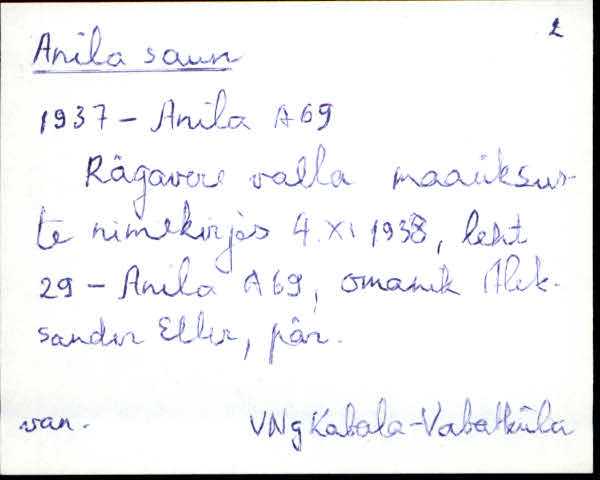 2
Anila saun
1937 – Anila A69
Rägavere valla maaüksus-
te nimekirjas 4. XI 1938, leht
29 – Anila A69, omanik Alek-
sander Eller, pär.
van. VNg Kabala-Vabatküla